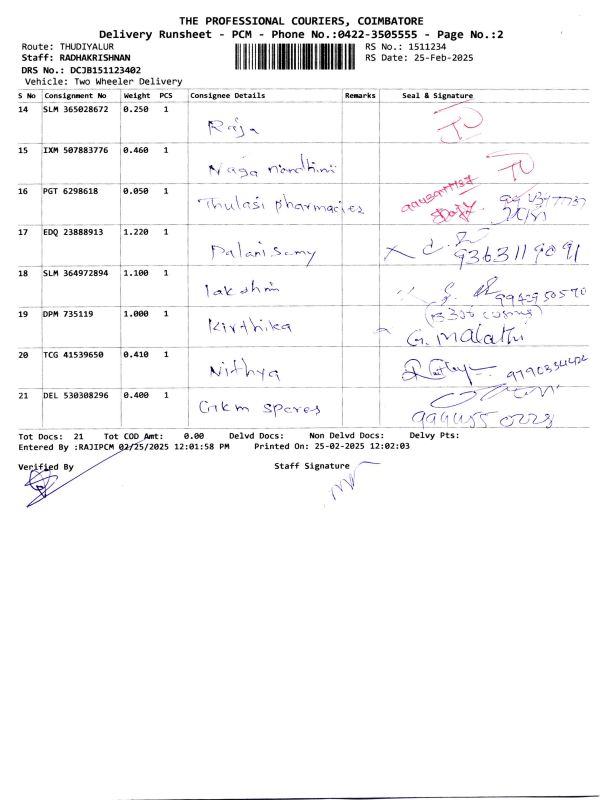 THE PROFESSIONAL COURIERS, COIMBATORE
Delivery Runsheet - PCM - Phone No.:0422-3505555 - Page No.:2
Route: THUDIYALUR
RS No.: 1511234
Staff: RADHAKRISHNAN
RS Date: 25-Feb-2025
DRS No.: DCJB151123402
Vehicle: Two Wheeler Delivery
S No Consignment No Weight PCS Consignee Details Remarks Seal & Signature
14 SLM 365028672 0.250 1
Raja
15 IXM 507883776 0.460 1
Naga nandhini
16 PGT 6298618 0.050 1
Thulasi pharmacies
17 EDQ 23888913 1.220 1
Palanisamy
9363119091
18 SLM 364972894 1.100 1
lakshmi
9942950570
19 DPM 735119 1.000 1
Kirthika
G. Malathi
20 TCG 41539650 0.410 1
Nithya
21 DEL 530308296 0.400 1
Gkm spares
Tot Docs: 21 Tot COD Amt: 0.00 Delvd Docs: Non Delvd Docs: Delvy Pts:
Entered By :RAJIPCM 02/25/2025 12:01:58 PM Printed On: 25-02-2025 12:02:03
Verified By Staff Signature